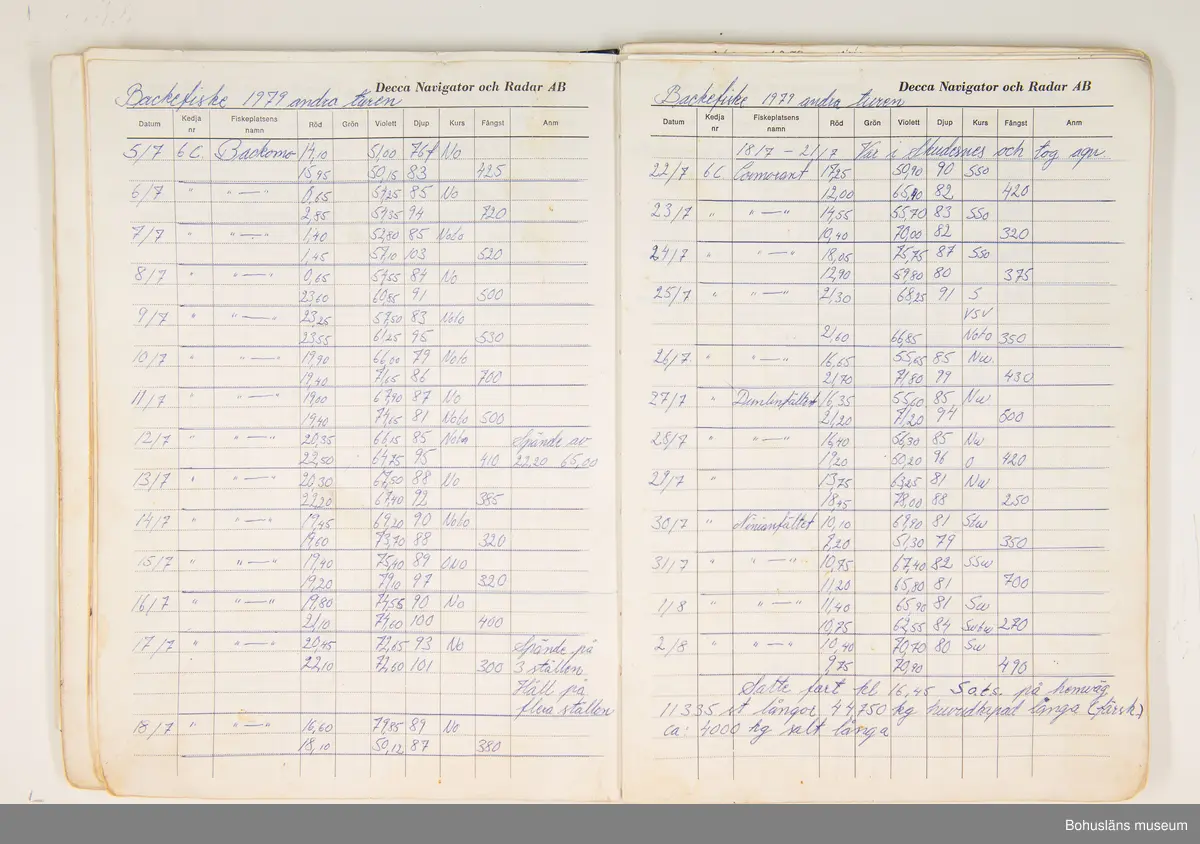 Decca Navigator och Radar AB
Backefiske 1979 andra turen
Datum Kedja nr Fiskeplatsens namn Röd Grön Violett Djup Kurs Fångst Anm
5/7 6 C. 14,10 51,00 76 No
15,95 50,15 83 425
6/7 " " — " 0,65 59,25 85 No
2,85 59,35 94 720
7/7 " " — " 1,40 52,80 85 Noto
1,45 57,10 103 520
8/7 " " — " 0,65 59,55 84 No
23,60 60,85 91 500
9/7 " " — " 23,25 59,50 83 Noto
23,55 61,25 95 530
10/7 " " — " 19,90 66,00 79 Noto
19,40 71,65 86 700
11/7 " " — " 19,00 67,90 87 No
19,40 74,65 81 Noto 500
12/7 " " — " 20,35 66,15 85 Noto Spände av
22,50 64,75 95 410 22.20 65,00
13/7 " " — " 20,30 67,50 88 No
22,20 67,40 92 385
14/7 " " — " 19,45 69,20 90 Noto
19,60 73,70 88 320
15/7 " " — " 19,40 75,40 89 ONO
19,20 79,10 97 320
16/7 " " — " 19,80 74,55 90 No
21,10 74,60 100 400
17/7 " " — " 20,45 72,65 93 No Spände på
22,10 72,60 101 300 3 ställen
Höll på
flera ställen
18/7 " " — " 16,60 79,85 89 No
18,10 50,12 87 380
Decca Navigator och Radar AB
Backefiske 1979 andra turen
Datum Kedja nr Fiskeplatsens namn Röd Grön Violett Djup Kurs Fångst Anm
18/7 – 21/7 Var i Skudesnes och tog agn
22/7 6 C Cormorant 17,25 50,90 90 SSo
12,00 65,40 82 420
23/7 " " — " 14,55 55,70 83 SSo
10,40 70,00 82 320
24/7 " " — " 18,05 75,75 87 SSo
12,90 59,80 80 375
25/7 " " — " 21,30 68,25 91 S
VSV
21,60 66,85 Noto 350
26/7 " " — " 16,55 55,65 85 Nw
21,70 71,80 99 430
27/7 " Dunlinfältet 16,35 55,60 85 Nw
21,20 71,20 94 600
28/7 " " — " 16,40 56,30 85 Nw
19,20 50,20 96 O 420
29/7 " 13,75 63,25 81 Nw
18,95 78,00 88 250
30/7 " Ninianfältet 10,10 69,80 81 Stw
9,20 51,30 79 350
31/7 " " — " 10,75 67,40 82 SSw
11,20 65,80 81 700
1/8 " " — " 11,40 65,90 81 Sw
10,95 62,55 84 Swtw 270
2/8 " — " 10,40 70,70 80 Sw
9,75 70,90 490
Satte fart kl 16,45 S.ots. på hemväg
11335 st långor 44750 kg huvudkapad långa (färsk)
ca: 4000 kg salt långa
Bohusläns museum